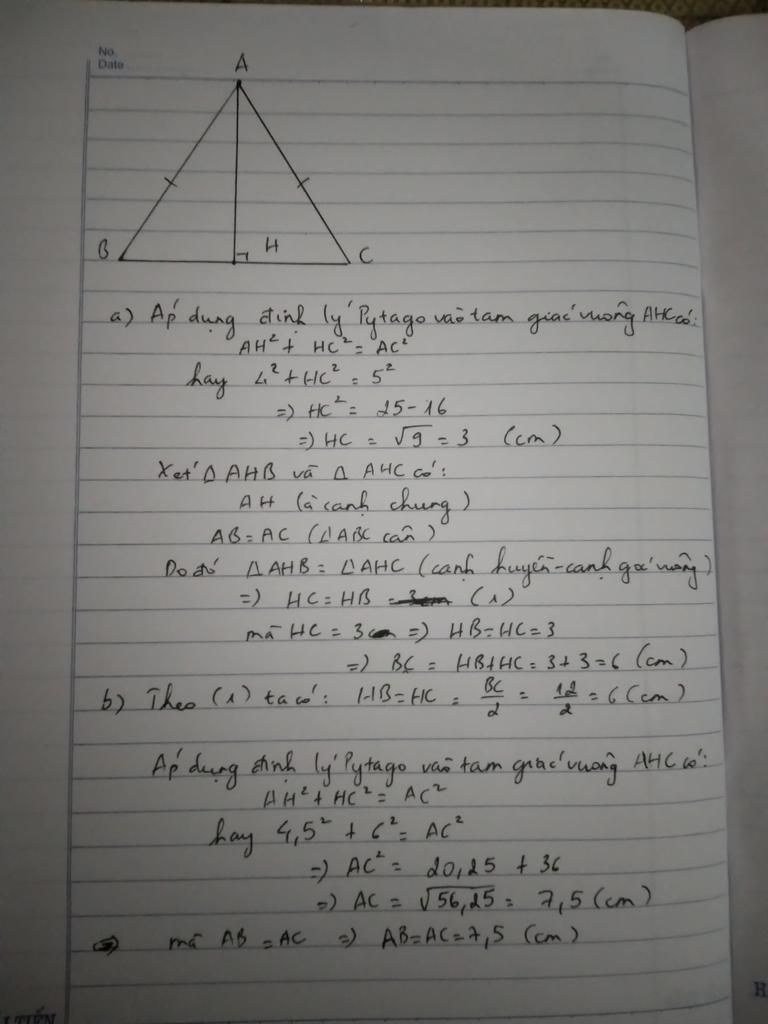 No.
Date
A
B
H
C
a) Áp dụng định lý Pytago vào tam giác vuông AHC có:
AH² + HC² = AC²
hay 4² + HC² = 5²
=> HC² = 25 - 16
=> HC = √9 = 3 (cm)
Xét △ AHB và △ AHC có:
AH là cạnh chung)
AB = AC (△ABC cân)
Do đó △AHB = △AHC (cạnh huyền - cạnh góc vuông)
=> HC = HB (1)
mà HC = 3 => HB = HC = 3
=> BC = HB + HC = 3 + 3 = 6 (cm)
b) Theo (1) ta có: HB = HC = BC/2 = 12/2 = 6 (cm)
Áp dụng định lý Pytago vào tam giác vuông AHC có:
AH² + HC² = AC²
hay 4,5² + 6² = AC²
=> AC² = 20,25 + 36
=> AC = √56,25 = 7,5 (cm)
mà AB = AC => AB = AC = 7,5 (cm)
H
TIẾN